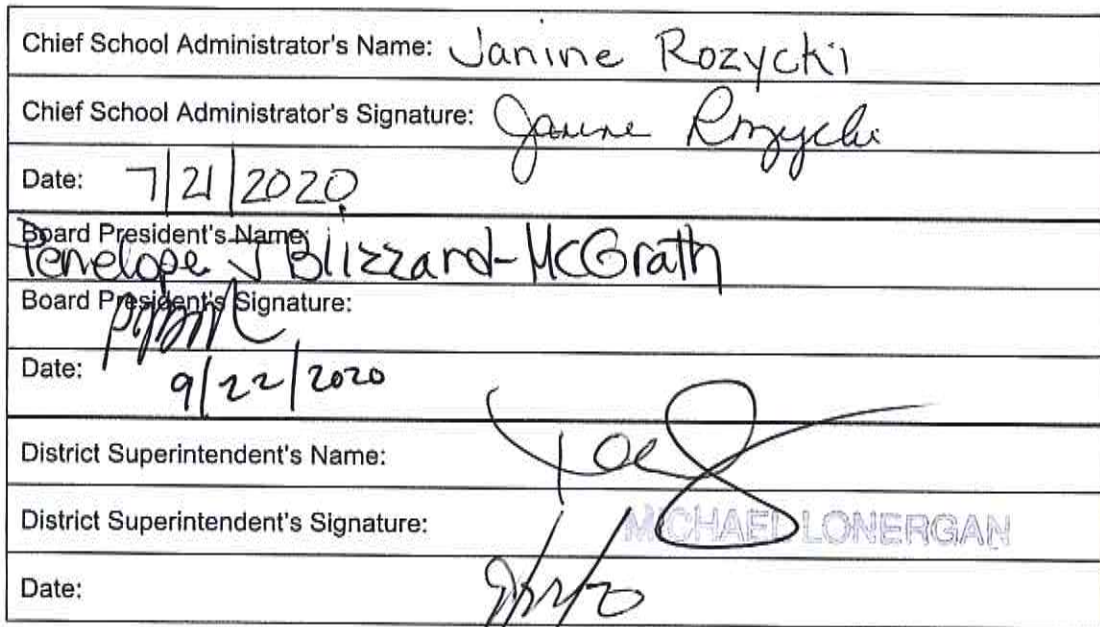 Chief School Administrator's Name: Janine Rozycki
Chief School Administrator's Signature: Janine Rozycki
Date: 7/21/2020
Board President's Name:
Penelope J Blizzard-McGrath
Board President's Signature:
Date: 9/22/2020
District Superintendent's Name:
District Superintendent's Signature: MICHAEL LONERGAN
Date: